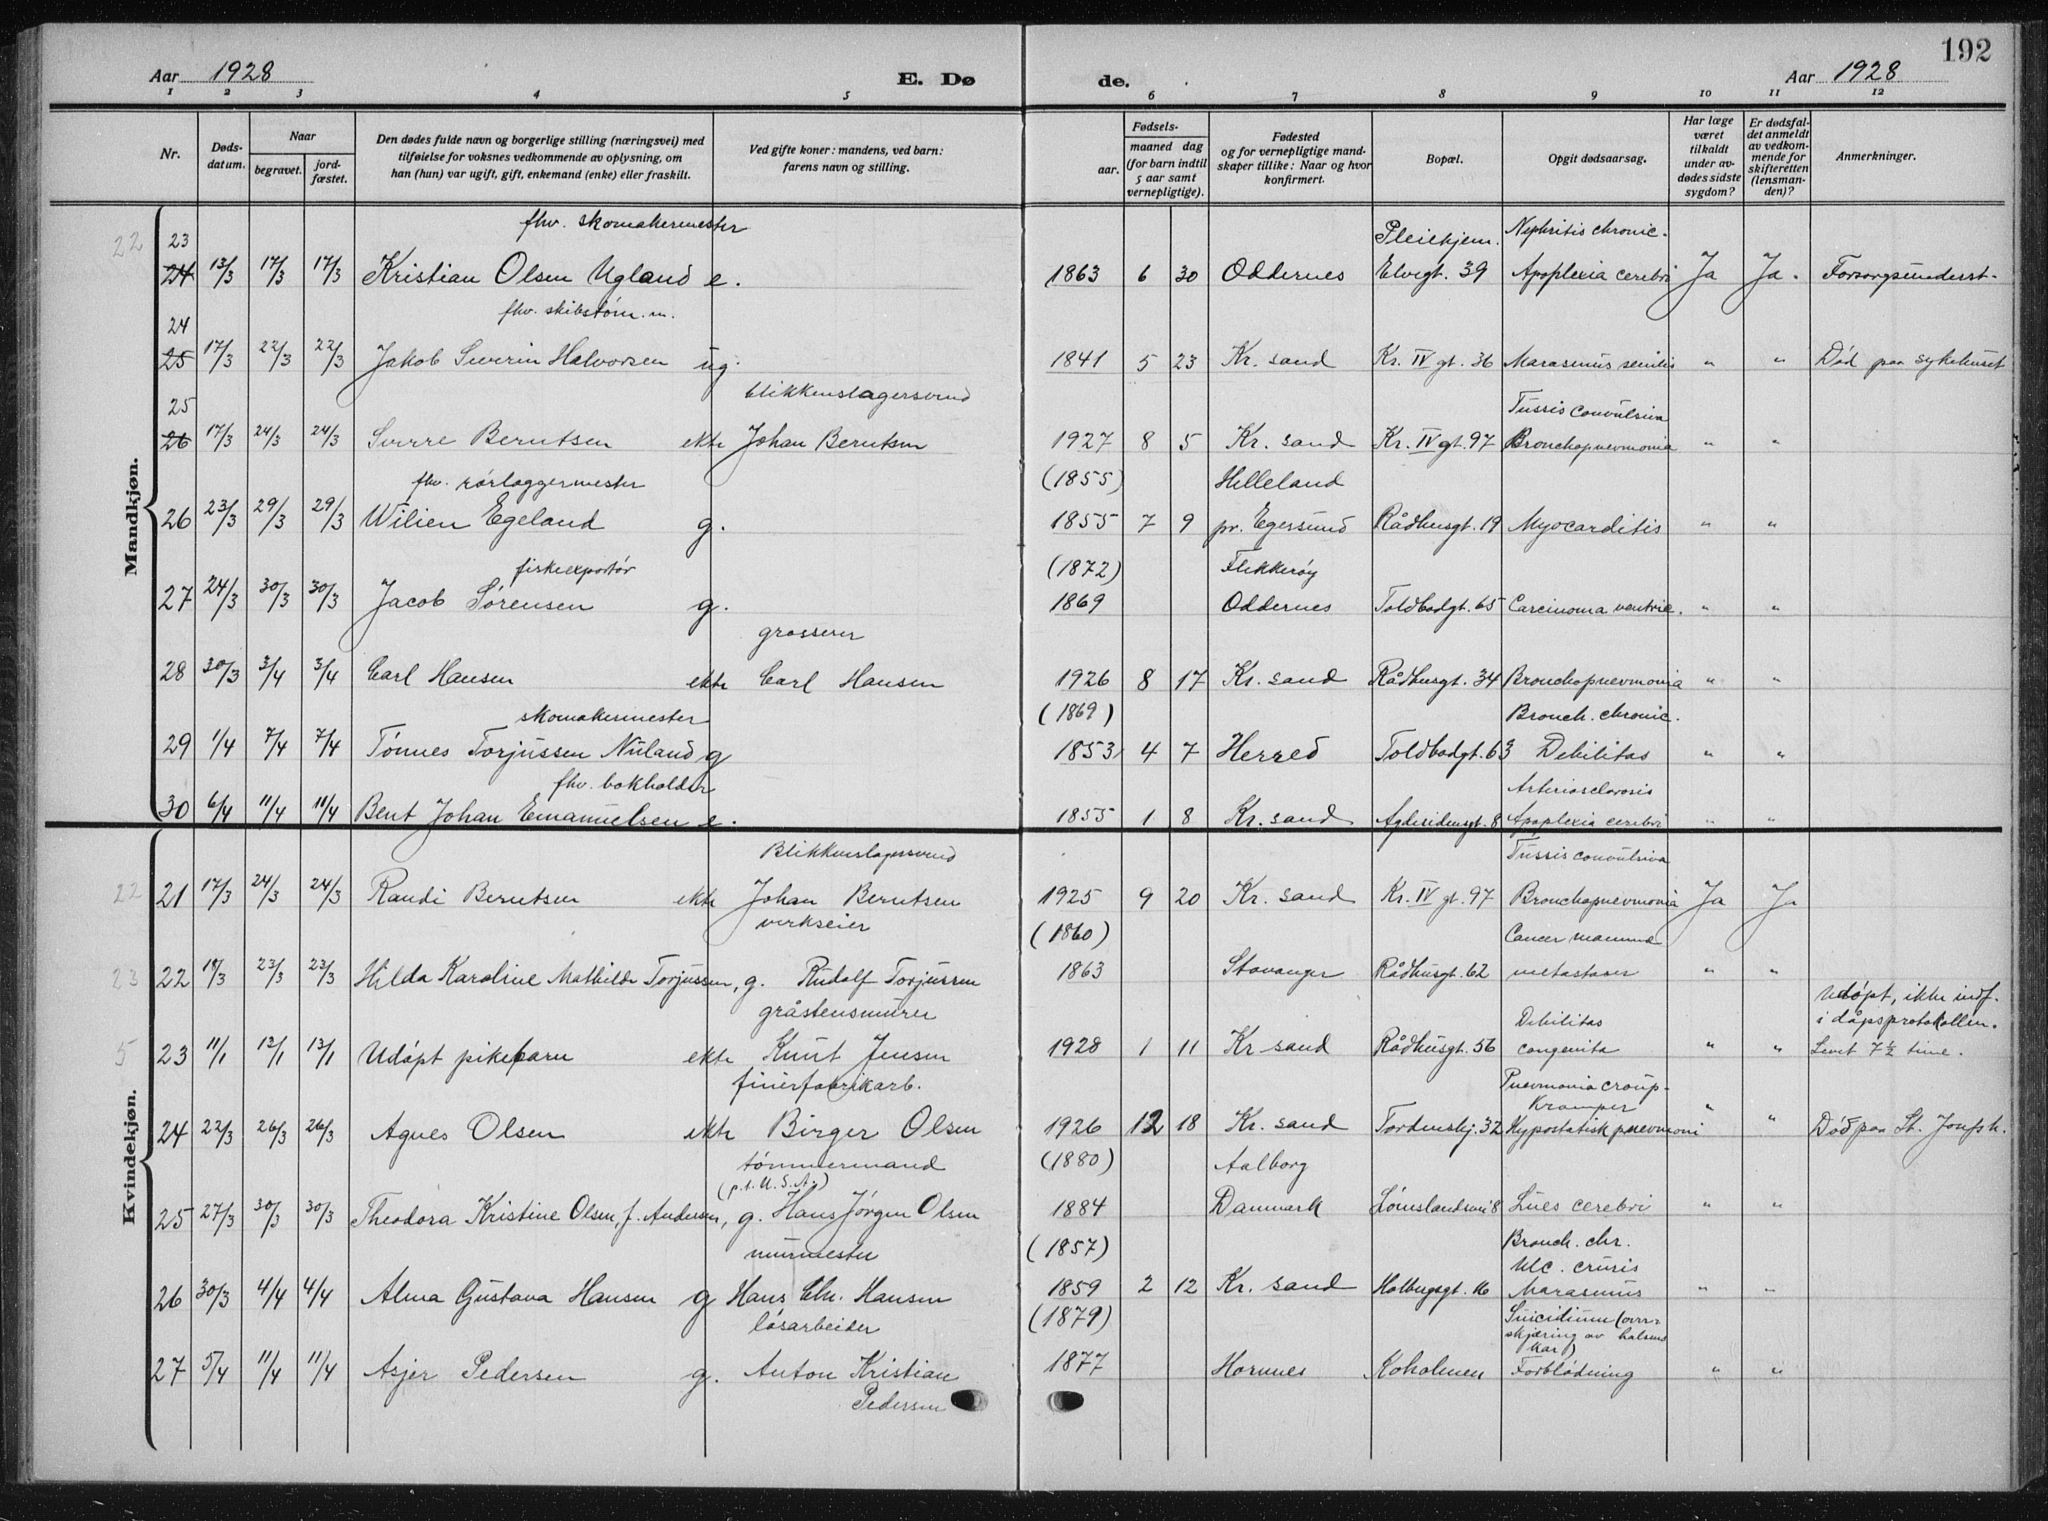 192
Aar 1928
E. Dø
de.
Aar 1928
1 2 3 4 5 6 7 8 9 10 11 12
Nr.
Døds-
datum.
Naar
begravet.
jord-
fæstet.
Den dødes fulde navn og borgerlige stilling (næringsvei) med
tilføielse for voksnes vedkommende av oplysning, om
han (hun) var ugift, gift, enkemand (enke) eller fraskilt.
Ved gifte koner: mandens, ved barn:
farens navn og stilling.
Fødsels-
aar.
maaned dag
(for barn indtil
5 aar samt
vernepligtige).
Fødested
og for vernepligtige mand-
skaper tillike: Naar og hvor
konfirmert.
Bopæl.
Opgit dødsaarsag.
Har læge
været
tilkaldt
under av-
dødes sidste
sygdom?
Er dødsfal-
det anmeldt
av vedkom-
mende for
skifteretten
(lensman-
den)?
Anmerkninger.
Mandkjøn.
fhv. skomakermester Pleiehjem. Nephritis chronic.
22 23
24 13/3 17/3 17/3 Kristian Olsen Ugland e. 1863 6 30 Oddernes Elvegt. 39 Apoplexia cerebri Ja Ja. Forsorgsunderst.
fhv. skibstøm.m.
24
25 17/3 22/3 22/3 Jakob Severin Halvorsen ug. 1841 5 23 Kr. sand Kr. IV gt. 36 Marasmus senilis " " Død paa sykehuset
blikkenslagersvend Tussis convulsiva
25
26 17/3 24/3 24/3 Sverre Berntsen ekte Johan Berntsen 1927 8 5 Kr. sand Kr. IV gt. 97 Bronchopnevmonia " "
fhv. rørlæggermester (1855) Helleland
26 23/3 29/3 29/3 Wilien Egeland g. 1855 7 9 pr. Egersund Rådhusgt. 19 Myocarditis " "
fiskeexportør (1872) Flekkerøy
27 24/3 30/3 30/3 Jacob Sørensen g. 1869 Oddernes Toldbodgt. 65 Carcinoma ventric. " "
grosserer
28 30/3 3/4 3/4 Carl Hansen ekte Carl Hansen 1926 8 17 Kr. sand Rådhusgt. 34 Bronchopnevmonia " "
skomakermester (1869) Bronch. chronic.
29 1/4 7/4 7/4 Tønnes Torjussen Nuland g 1853 4 7 Herred Toldbodgt. 63 Debilitas " "
fhv. bokholder Arteriosclerosis
30 6/4 11/4 11/4 Bent Johan Emanuelsen e. 1855 1 8 Kr. sand Agdesidensgt. 8 Apoplexia cerebri " "
Kvindekjøn.
Blikkenslagersvend Tussis convulsiva
22 21 17/3 24/3 24/3 Randi Berntsen ekte Johan Berntsen 1925 9 20 Kr. sand Kr. IV gt. 97 Bronchopnevmonia Ja Ja
verkseier (1860) Cancer mamma
23 22 18/3 23/3 23/3 Hilda Karoline Mathilde Torjussen, g. Rudolf Torjussen 1863 Stavanger Rådhusgt. 62 metastaser " "
gråstensmurer Debilitas Udøpt, ikke indf. i dåpsprotokollen.
5 23 11/1 13/1 13/1 Udøpt pikebarn ekte Knut Jensen 1928 1 11 Kr sand Rådhusgt. 56 congenita " " Levet 7 1/2 time.
finerfabrikarb. Pnevmonia croup-
Kramper
24 22/3 26/3 26/3 Agnes Olsen ekte Birger Olsen 1926 12 18 Kr. sand Tordenskj. 32 Hypostatisk pnevmoni " " Død paa St. Josefsh.
tømmermand (1880) Aalborg
(p.t. U.S.A.)
25 27/3 30/3 30/3 Theodora Kristine Olsen, f. Andersen, g. Hans Jørgen Olsen 1884 Danmark Lømslandsvei 8 Lues cerebri " "
murmester (1857) Bronch. chr.
Ulc. cruris
26 30/3 4/4 4/4 Alma Gustava Hansen g Hans Chr. Hansen 1859 2 12 Kr. sand Holbergsgt. 16 Marasmus " "
løsarbeider (1879) Suicidium (over-
skjæring av halsens
kar)
27 5/4 11/4 11/4 Asjer Pedersen g. Anton Kristian 1877 Hornnes Koholmen Forblødning " "
Pedersen